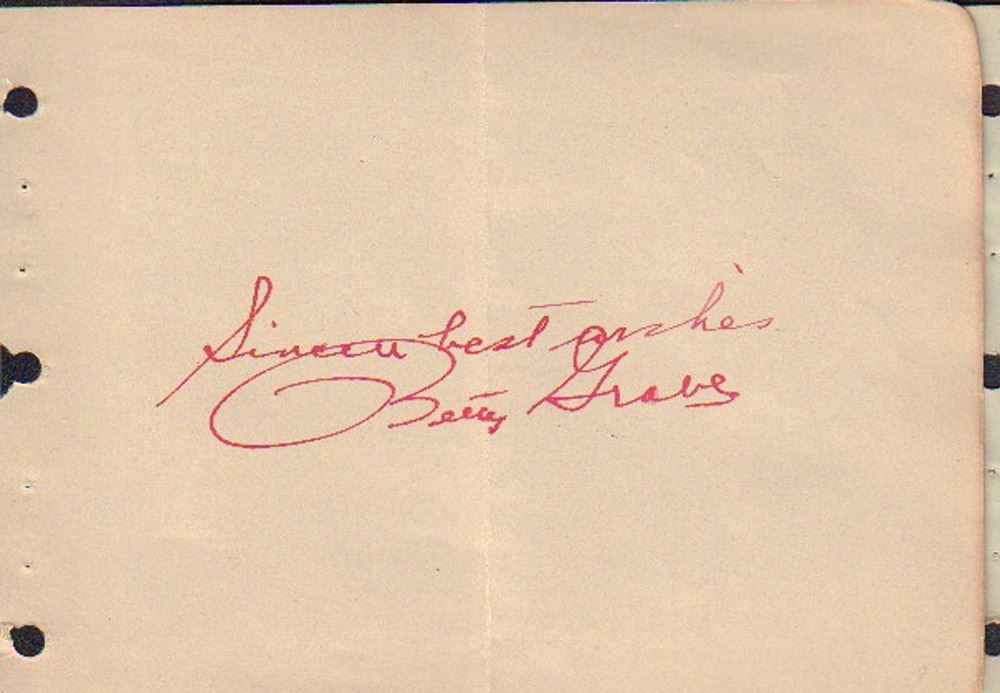 Sincere best wishes
Betty Grable